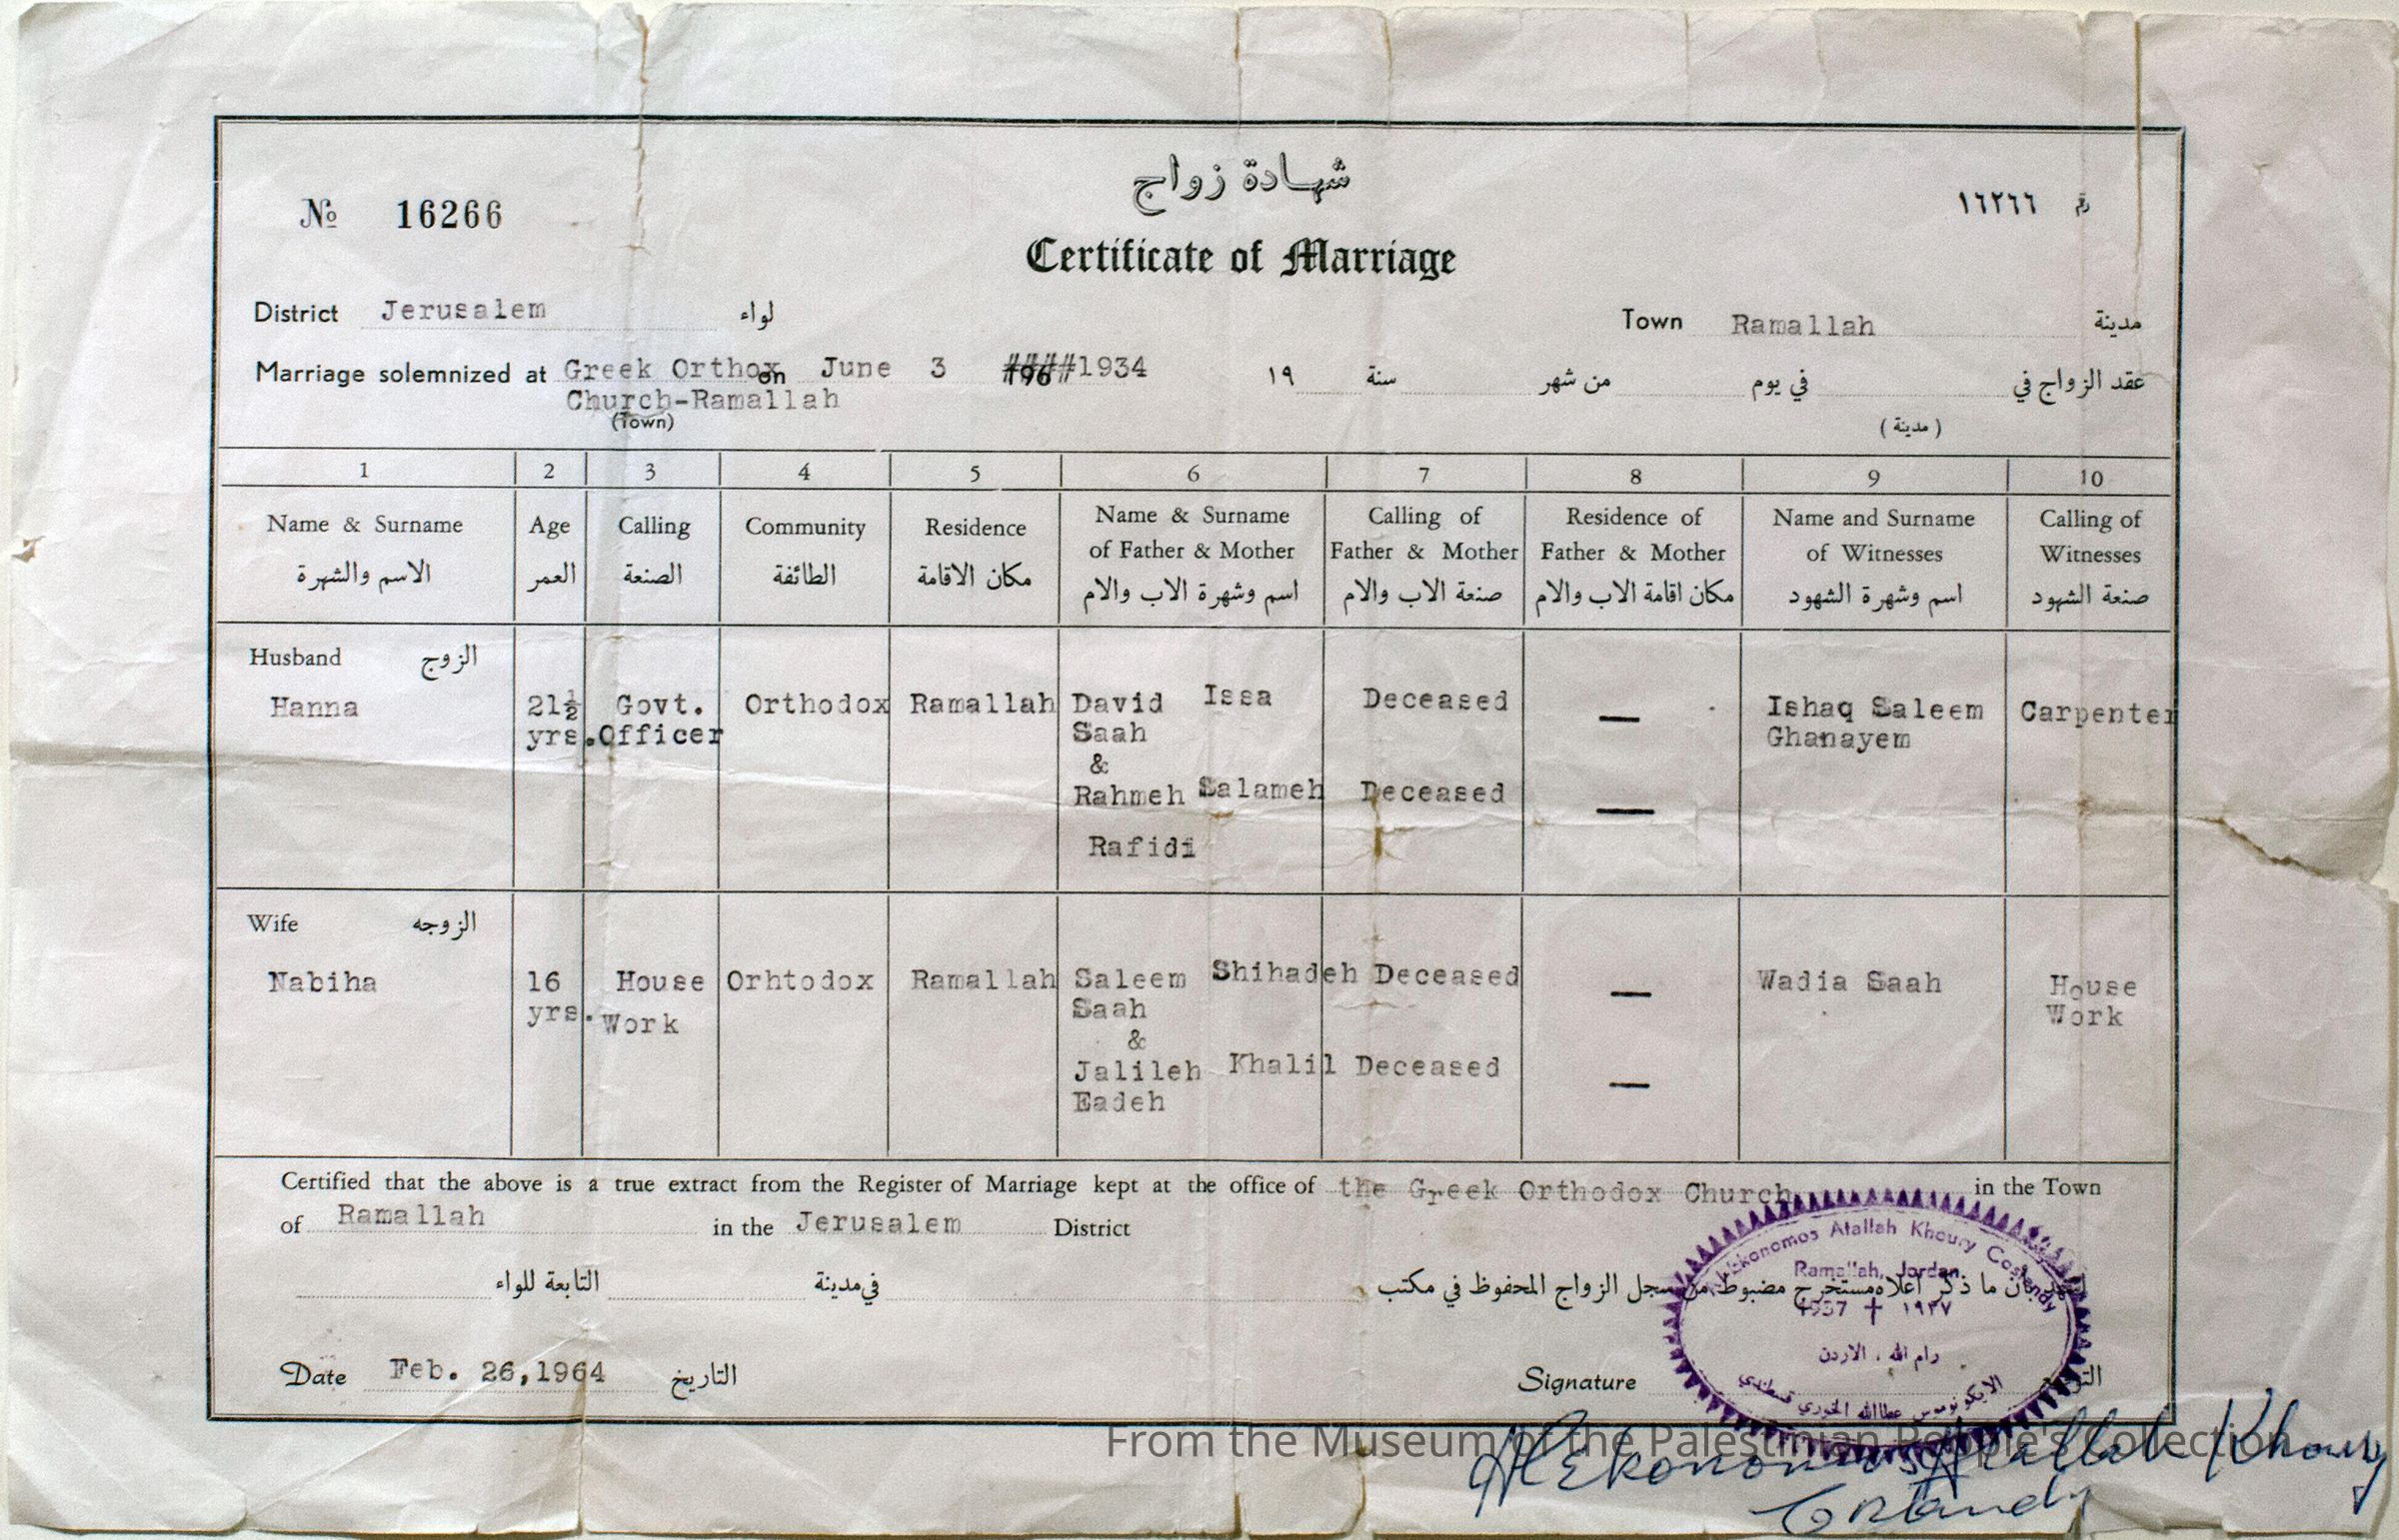 شهادة زواج
№ 16266
١٦٢٦٦ رقم
Certificate of Marriage
District Jerusalem لواء
Town Ramallah مدينة
Marriage solemnized at Greek Orthox on June 3 ####1934
Church-Ramallah
(Town)
عقد الزواج في في يوم من شهر سنة ١٩
( مدينة )
1 2 3 4 5 6 7 8 9 10
Name & Surname
الاسم والشهرة
Age
العمر
Calling
الصنعة
Community
الطائفة
Residence
مكان الاقامة
Name & Surname
of Father & Mother
اسم وشهرة الاب والام
Calling of
Father & Mother
صنعة الاب والام
Residence of
Father & Mother
مكان اقامة الاب والام
Name and Surname
of Witnesses
اسم وشهرة الشهود
Calling of
Witnesses
صنعة الشهود
Husband الزوج
Hanna
21½
yrs.
Govt.
Officer
Orthodox
Ramallah
David Issa
Saah
&
Rahmeh Salameh
Rafidi
Deceased
Deceased
—
—
Ishaq Saleem
Ghanayem
Carpenter
Wife الزوجه
Nabiha
16
yrs.
House
Work
Orhtodox
Ramallah
Saleem Shihadeh
Saah
&
Jalileh Khalil
Eadeh
Deceased
Deceased
—
—
Wadia Saah
House
Work
Certified that the above is a true extract from the Register of Marriage kept at the office of the Greek Orthodox Church in the Town
of Ramallah in the Jerusalem District
ما ذكر اعلاه مستخرج مضبوط من سجل الزواج المحفوظ في مكتب
في مدينة التابعة للواء
Date Feb. 26,1964 التاريخ
Signature
Ekonomos Atallah Khoury Costandy
Ramallah, Jordan
1937 ١٩٣٧
رام الله ، الاردن
الايكونوموس عطاالله الخوري قسطندي
From the Museum of the Palestinian People's Collection
Ekonomos Atallah Khoury